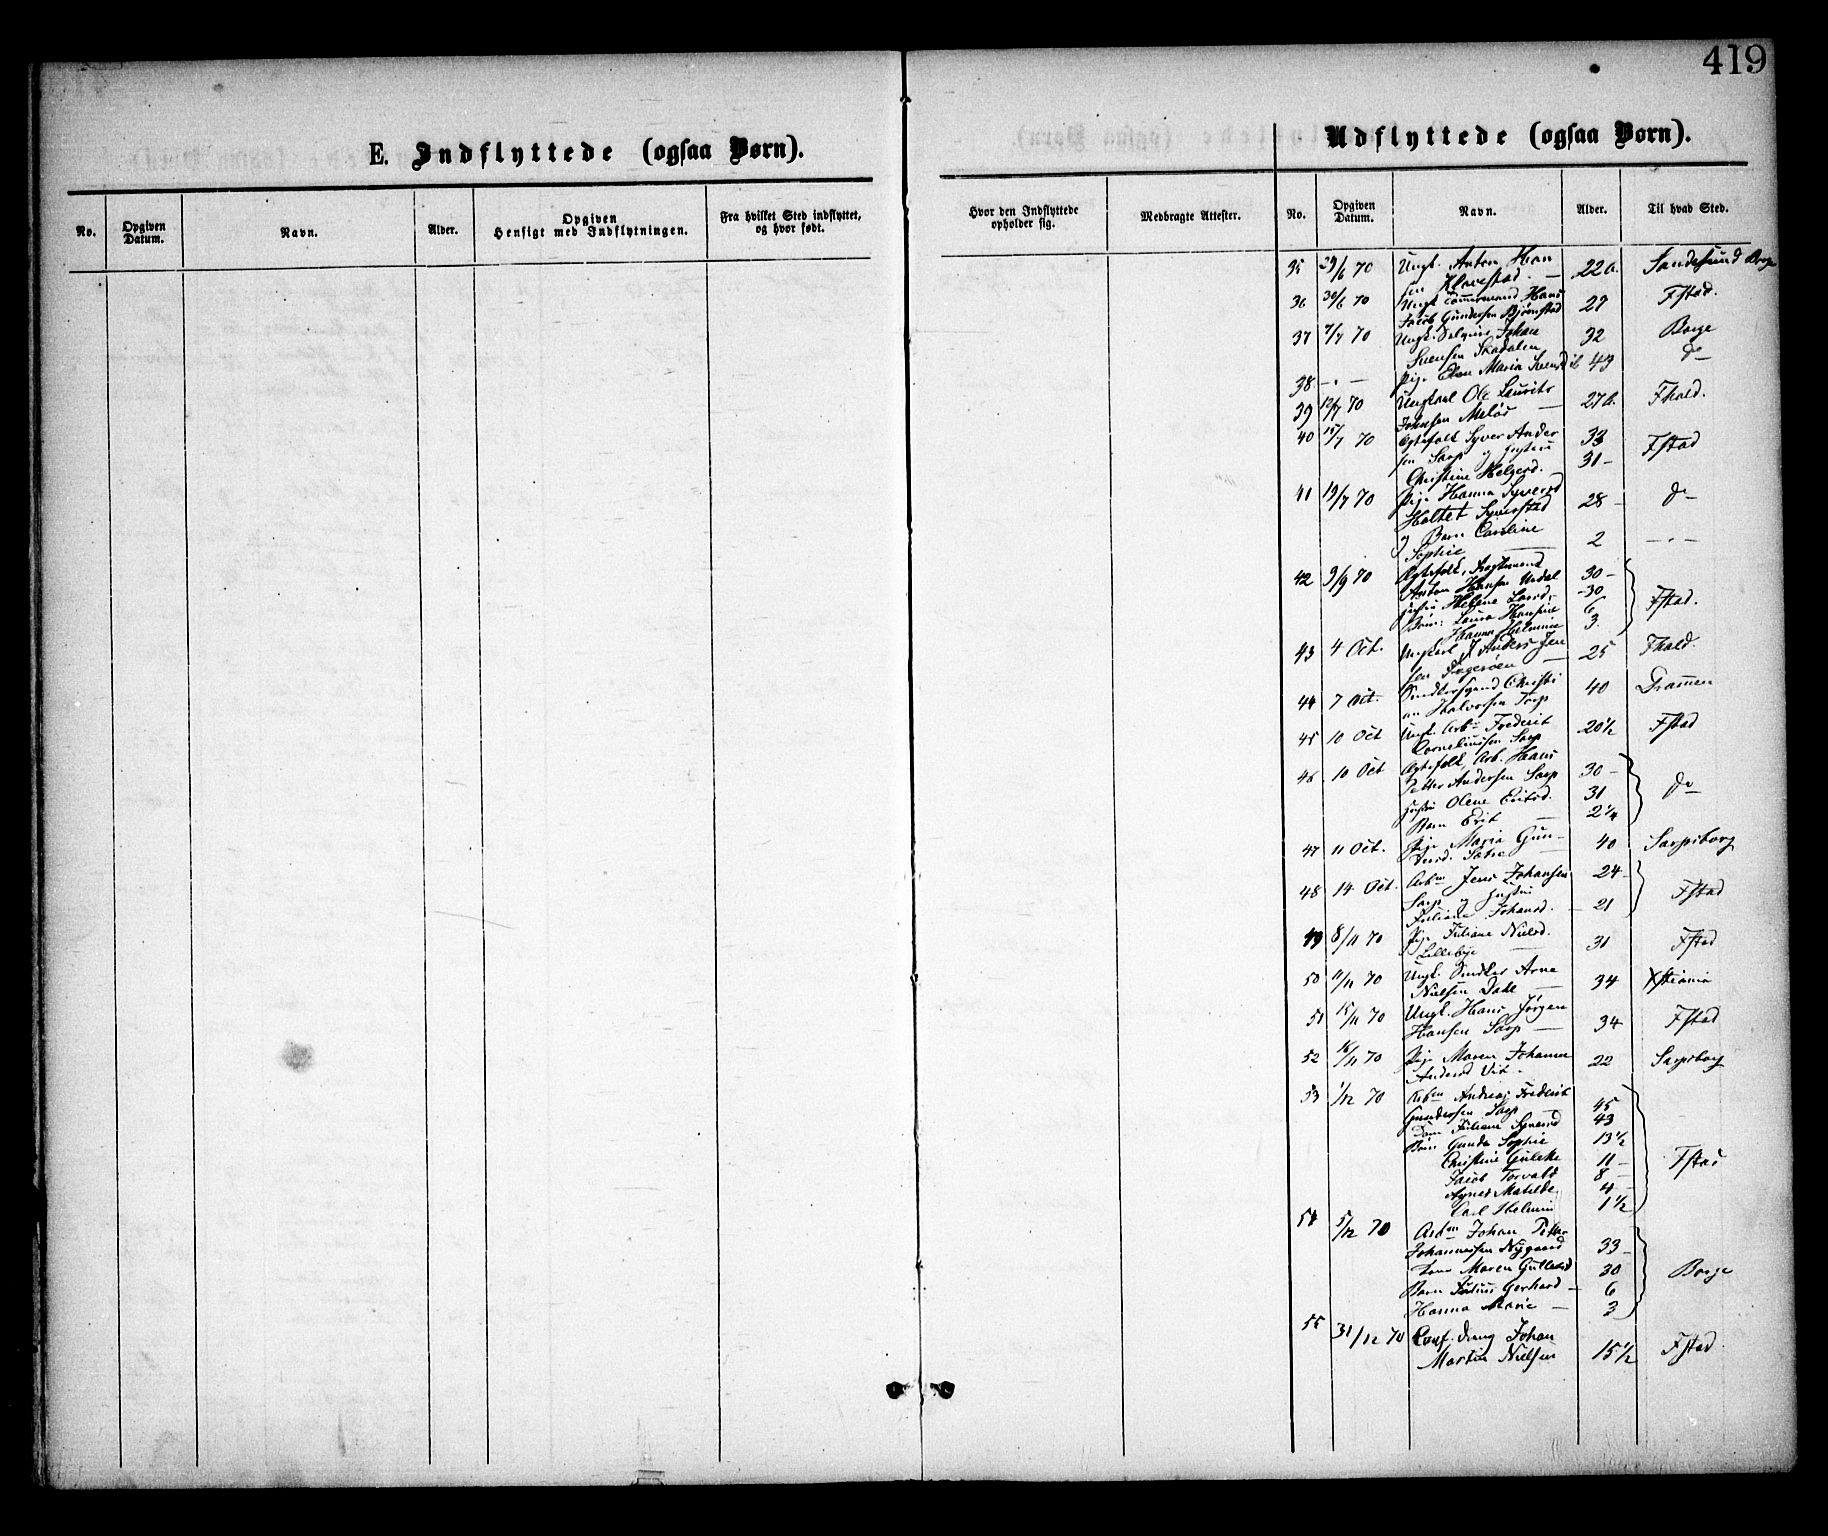 419
E. Indflyttede (ogsaa Børn).
Udflyttede (ogsaa Børn).
No.
Opgiven Datum.
Navn.
Alder.
Opgiven Hensigt med Indflytningen.
Fra hvilket Sted indflyttet, og hvor født.
Hvor den Indflyttede opholder sig.
Medbragte Attester.
No.
Opgiven Datum.
Navn.
Alder.
Til hvad Sted.
35 29/6 70 Ungk. Anton Han
sen Klavestad. — 22 Sandesund Borge
36 30/6 70 Ungk Tømmermand Hans
Jacob Gundersen Bjørnstad 27 Fstad.
37 7/7 70 Ungk. Johan 32 Borge
Svensen Skadalen
38 - " - Pige Elen Maria Svensd 43 do
39 12/7 70 Ungkarl Ole Laurits
Johnsen Meløs — 27 Fhald.
40 15/7 70 Egtefolk Syver Ander 33
sen Sarp og Hustru 31 - Fstad
Christine Helgesd.
41 19/7 70 Pige Hanna Syversd
Holtet Syverstad 28 - do
og Barn Caroline
Sophie — 2 — " —
42 9/9 70 Egtefolk, 30 -
Anton Hansen Undal - 30
Hustru Helene Larsd. 6 Fstad.
Børn: Laura 3
Hanna Helmine
43 4 Oct. Ungkarl Anders Jen
sen — 25 Fhald.
44 7 Oct. Christi
an Halvorsen Torp 40 Drammen
45 10 Oct Ungk. Arbm Frederik 20 1/2 Fstad
Corneliussen Sarp
46 10 Oct Egtefolk, Arb. Hans
Petter Andersen Sarp 30 -
Hustru Olene Eriksd. 31 do
Barn Erik — 2 1/4
47 11 Oct. Pige Maria Gun- 40 Sarpsborg
dersd.
48 14 Oct. Arbm Jens Johansen 24 -
Sarp og Hustru Fstad
Juliane Johansd. - 21
49 8/11 70 Pige Juliane Nielsd. 31 Fstad
Lillebye —
50 11/11 70 Ungk. Snedker Arne
Nielsen Dahl — 34 Xstiania
51 15/11 70 Ungk. Hans Jørgen
Hansen Sarp — 34 Fstad
52 16/11 70 Pige Maren Johanne 22 Sarpsborg
Andersd Vik.
53 1/12 70 Arbm Andreas Frederik
Gundersen Sarp — 45
Kone Juliane Syversd 43
Børn Gunda Sophie 13 1/2
Christine Gulekke 11 - Fstad
Jacob Torvald 8 -
Agnes Matilde 4 -
Carl Helmin 1 1/2
54 5/12 70 Arbm Johan Petter
Johannessen Nygaard 33 -
Kone Maren Gulliksd 30 Borge
Barn Julius Gerhard - 6
Hanna Marie — 3
55 31/12 70 Conf. dreng Johan
Martin Nielsen 15 1/2 Fstad.